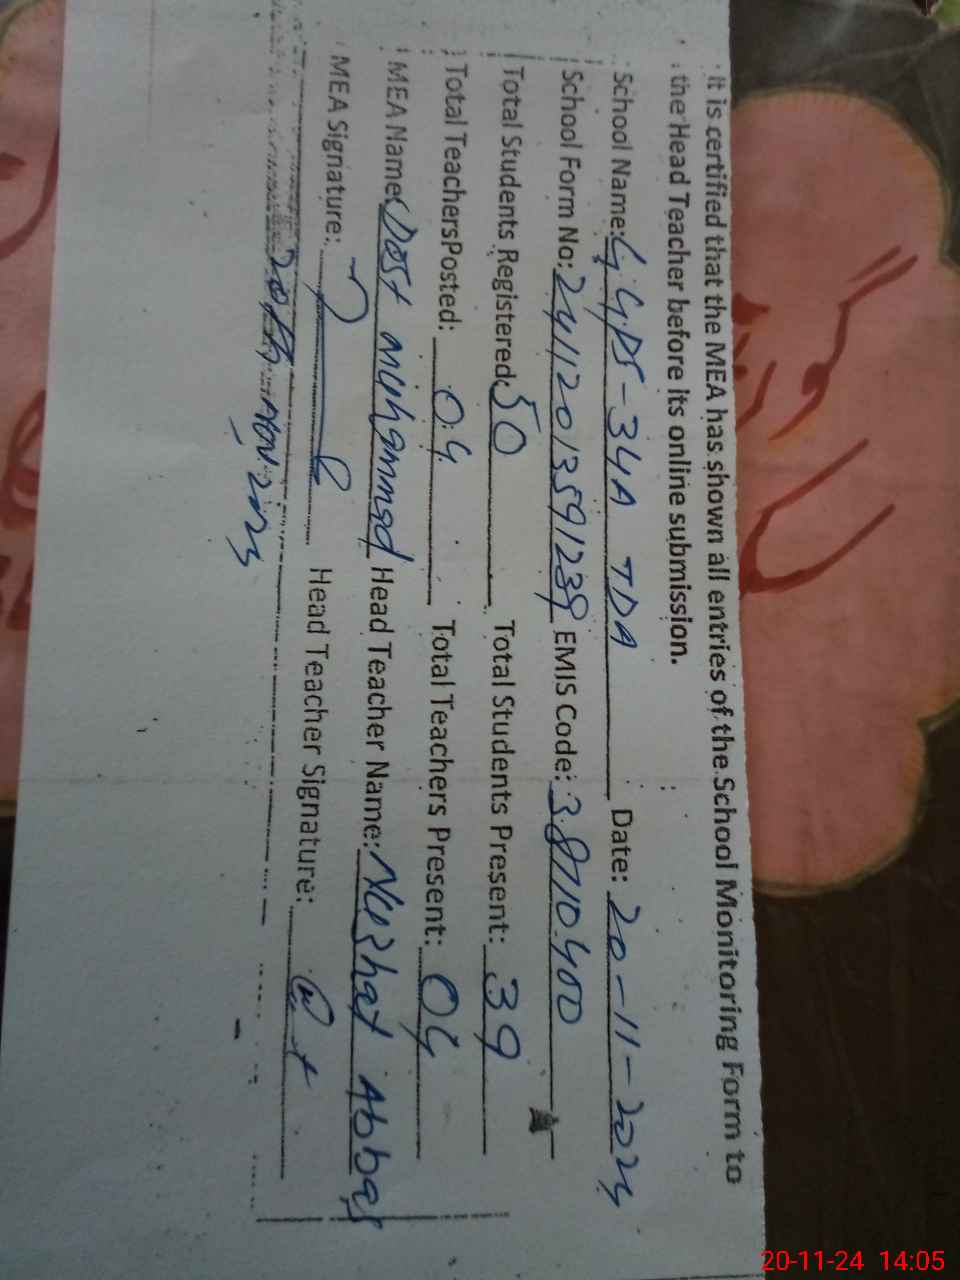 It is certified that the MEA has shown all entries of the School Monitoring Form to
the Head Teacher before its online submission.
School Name: GGPS-34A TDA Date: 20-11-2024
School Form No: 24112013591239 EMIS Code: 38710400
Total Students Registered: 50 Total Students Present: 39
Total TeachersPosted: 04 Total Teachers Present: 04
MEA Name: Dost muhammad Head Teacher Name: Nuzhat Abbas
MEA Signature: Head Teacher Signature:
20-11-24 14:05